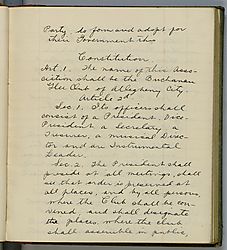 Party to form and adopt for
their Government this
Constitution
Art. 1. The name of this Asso-
ciation shall be the Buchanan
Glee Club of Allegheny City.
Article 2d
Sec. 1. Its officers shall
consist of a President, Vice-
President a Secretary, a
Treasurer, a musical Direc-
tor and an Instrumental
Leader.
Sec. 2. The President shall
preside at all meetings, shall
see that order is preserved at
all places, and by all persons
where the Club shall be con-
vened and shall designate
the places, where the club
shall assemble in public,